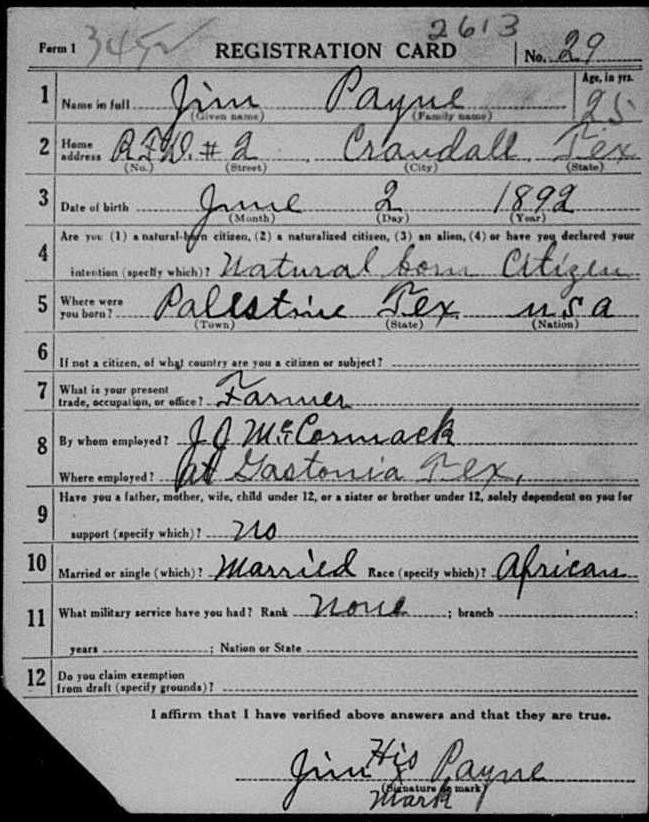 2613
Form 1 3452 REGISTRATION CARD No. 29
1 Name in full Jim Payne Age, in yrs. 25
(Given name) (Family name)
2 Home address R.F.D. # 2 Crandall Tex
(No.) (Street) (City) (State)
3 Date of birth June 2 1892
(Month) (Day) (Year)
4 Are you (1) a natural-born citizen, (2) a naturalized citizen, (3) an alien, (4) or have you declared your
intention (specify which)? Natural born Citizen
5 Where were you born? Palestine Tex USA
(Town) (State) (Nation)
6 If not a citizen, of what country are you a citizen or subject?
7 What is your present trade, occupation, or office? Farmer
8 By whom employed? J J McCormack
Where employed? at Gastonia Tex,
9 Have you a father, mother, wife, child under 12, or a sister or brother under 12, solely dependent on you for
support (specify which)? No
10 Married or single (which)? Married Race (specify which)? African
11 What military service have you had? Rank None ; branch ;
years ; Nation or State
12 Do you claim exemption
from draft (specify grounds)?
I affirm that I have verified above answers and that they are true.
Jim His x Payne
(Signature or mark)
Mark